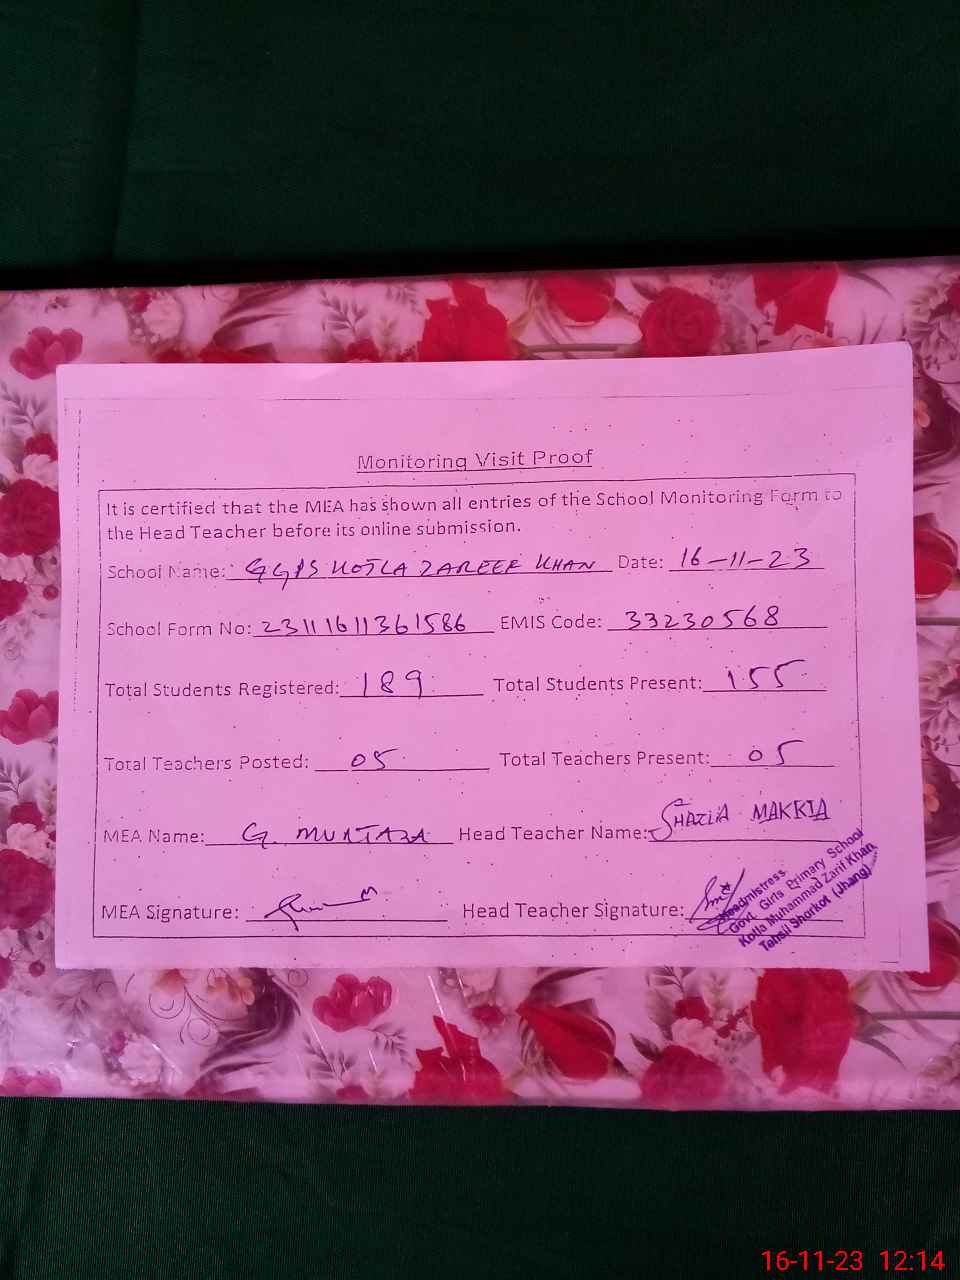 Monitoring Visit Proof
It is certified that the MEA has shown all entries of the School Monitoring Form to
the Head Teacher before its online submission.
School Name: GGPS KOTLA ZAREEF KHAN Date: 16-11-23
School Form No: 23111611361586 EMIS Code: 33230568
Total Students Registered: 189 Total Students Present: 155
Total Teachers Posted: 05 Total Teachers Present: 05
MEA Name: G. MURTAZA Head Teacher Name: SHAZIA MAKRIA
MEA Signature: Head Teacher Signature:
Headmistress
Govt. Girls Primary School
Kotla Muhammad Zarif Khan
Tehsil Shorkot (Jhang)
16-11-23 12:14